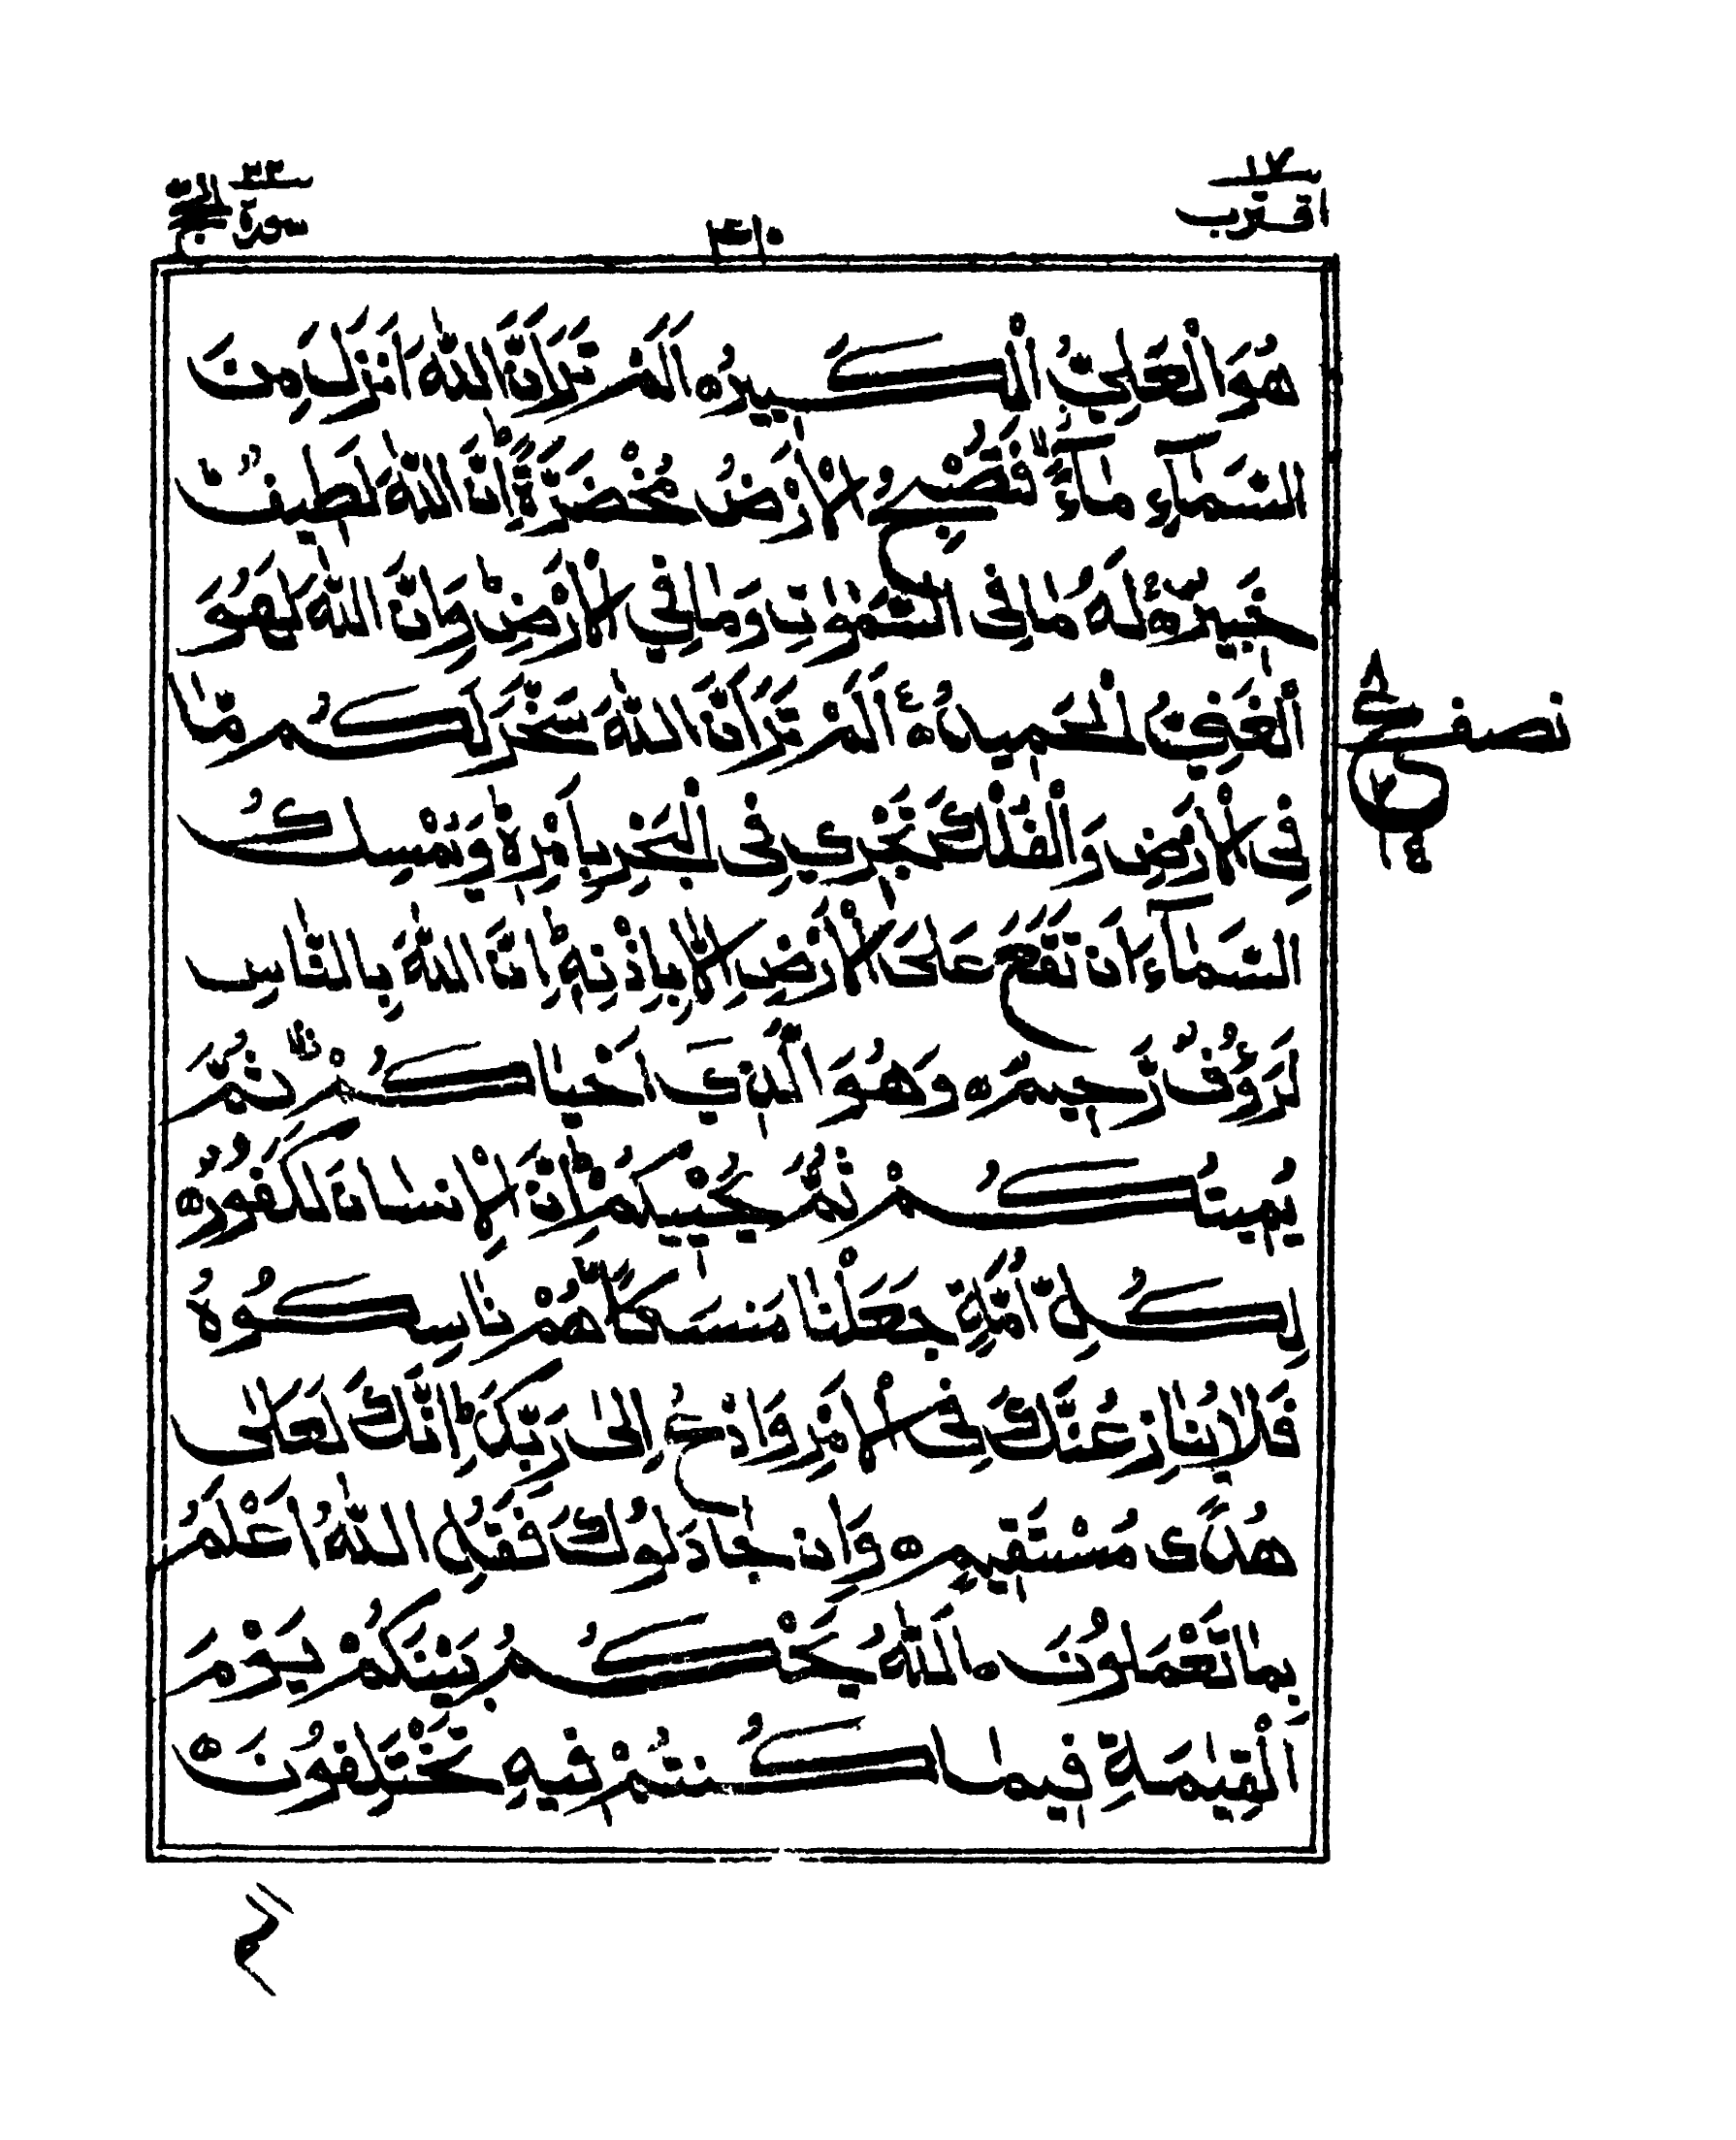 ١٧ اقترب
٣١٠
٢٢ سورة الحج
هُوَ الْعَلِيُّ الْكَبِيرُ ه اَلَمْ تَرَ اَنَّ اللّٰهَ اَنْزَلَ مِنَ
السَّمَآءِ مَآءً ۫ فَتُصْبِحُ الْاَرْضُ مُخْضَرَّةً ؕ اِنَّ اللّٰهَ لَطِيفٌ
خَبِيرٌ ۚ ه لَهُ مَا فِى السَّمٰوٰتِ وَمَا فِي الْاَرْضِ ؕ وَاِنَّ اللّٰهَ لَهُوَ
الْغَنِيُّ الْحَمِيدُ ه ع اَلَمْ تَرَ اَنَّ اللّٰهَ سَخَّرَ لَكُمْ مَّا
نصف ٨ ح ع ٧ ١٤
فِى الْاَرْضِ وَالْفُلْكَ تَجْرِي فِى الْبَحْرِ بِاَمْرِهٖ ؕ وَيُمْسِكُ
السَّمَآءَ اَنْ تَقَعَ عَلَى الْاَرْضِ اِلَّا بِاِذْنِهٖ ؕ اِنَّ اللّٰهَ بِالنَّاسِ
لَرَءُوْفٌ رَّحِيمٌ ه وَهُوَ الَّذِيٓ اَحْيَاكُمْ ۫ ثُمَّ
يُمِيتُكُمْ ثُمَّ يُحْيِيكُمْ ؕ اِنَّ الْاِنْسَانَ لَكَفُورٌ ه
لِكُلِّ اُمَّةٍ جَعَلْنَا مَنْسَكًا هُمْ نَاسِكُوهُ
فَلَا يُنَازِعُنَّكَ فِى الْاَمْرِ وَادْعُ اِلٰى رَبِّكَ ؕ اِنَّكَ لَعَلٰى
هُدًى مُسْتَقِيمٍ ه وَاِنْ جَادَلُوكَ فَقُلِ اللّٰهُ اَعْلَمُ
بِمَا تَعْمَلُونَ ه اَللّٰهُ يَحْكُمُ بَيْنَكُمْ يَوْمَ
الْقِيٰمَةِ فِيمَا كُنْتُمْ فِيهِ تَخْتَلِفُونَ ه